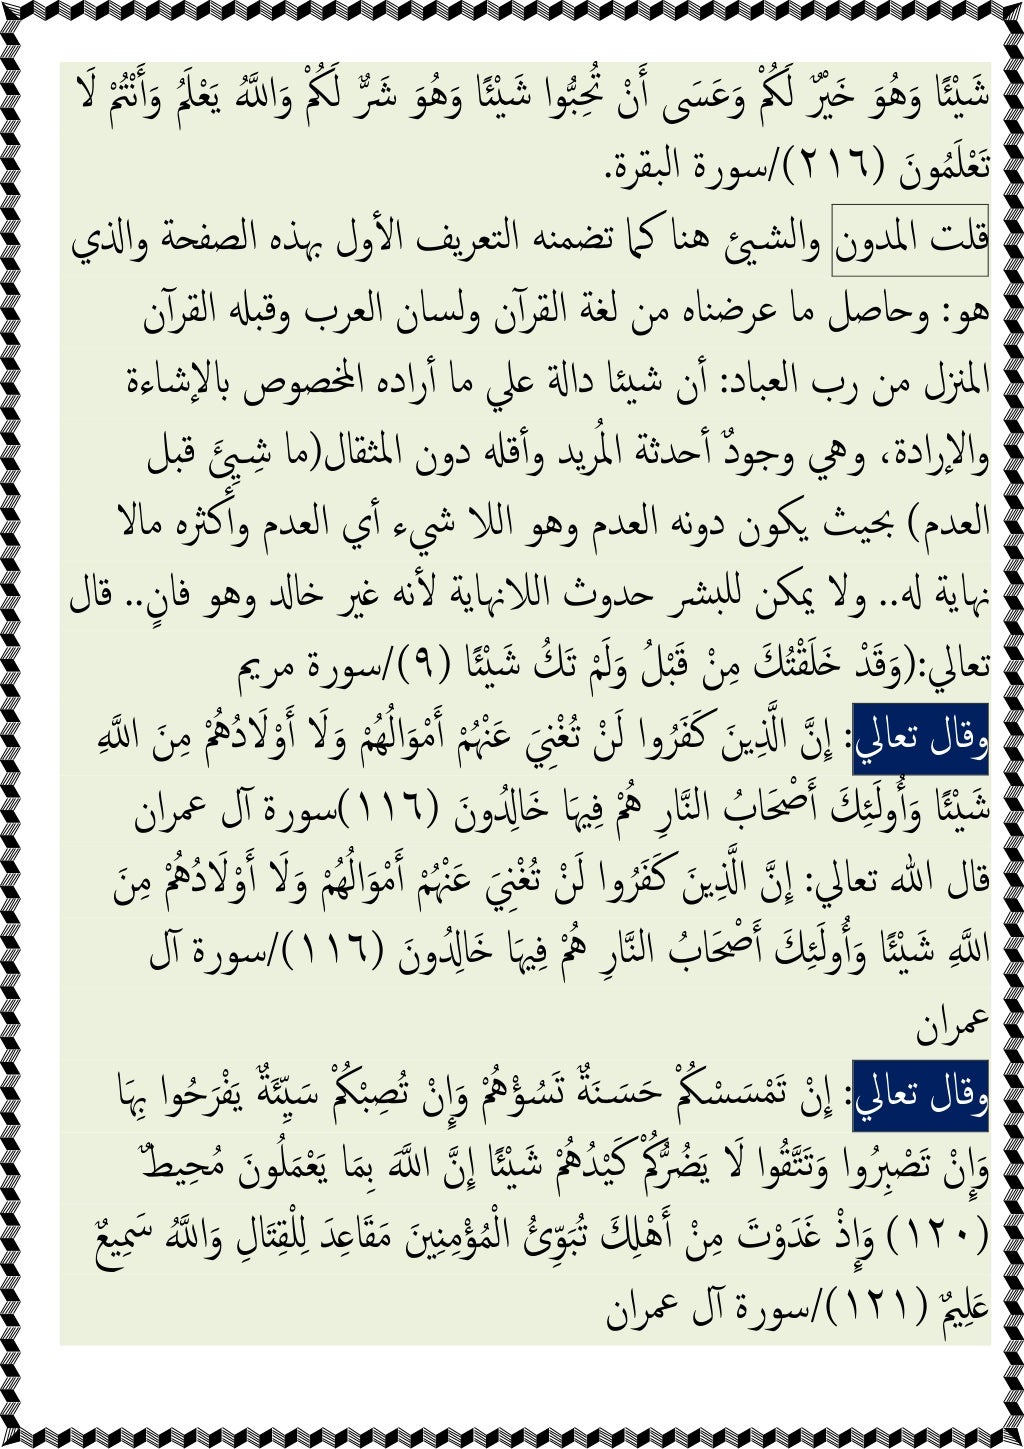 شَيْئًا وَهُوَ خَيْرٌ لَكُمْ وَعَسَى أَنْ تُحِبُّوا شَيْئًا وَهُوَ شَرٌّ لَكُمْ وَاللَّهُ يَعْلَمُ وَأَنْتُمْ لَا
تَعْلَمُونَ (٢١٦)/سورة البقرة.
قلت المدون والشيئ هنا كما تضمنه التعريف الأول بهذه الصفحة والذي
هو: وحاصل ما عرضناه من لغة القرآن ولسان العرب وقبله القرآن
المنزل من رب العباد: أن شيئا دالة علي ما أراده المخصوص بالإشاءة
والإرادة، وهي وجودٌ أحدثة المُريد وأقله دون المثقال(ما شِيِئَ قبل
العدم) بحيث يكون دونه العدم وهو اللا شيء أي العدم وأكثره مالا
نهاية له.. ولا يمكن للبشر حدوث اللانهاية لأنه غير خالد وهو فانٍ.. قال
تعالي:(وَقَدْ خَلَقْتُكَ مِنْ قَبْلُ وَلَمْ تَكُ شَيْئًا (٩)/سورة مريم
وقال تعالي: إِنَّ الَّذِينَ كَفَرُوا لَنْ تُغْنِيَ عَنْهُمْ أَمْوَالُهُمْ وَلَا أَوْلَادُهُمْ مِنَ اللَّهِ
شَيْئًا وَأُولَئِكَ أَصْحَابُ النَّارِ هُمْ فِيهَا خَالِدُونَ (١١٦)سورة آل عمران
قال الله تعالي: إِنَّ الَّذِينَ كَفَرُوا لَنْ تُغْنِيَ عَنْهُمْ أَمْوَالُهُمْ وَلَا أَوْلَادُهُمْ مِنَ
اللَّهِ شَيْئًا وَأُولَئِكَ أَصْحَابُ النَّارِ هُمْ فِيهَا خَالِدُونَ (١١٦)/سورة آل
عمران
وقال تعالي: إِنْ تَمْسَسْكُمْ حَسَنَةٌ تَسُؤْهُمْ وَإِنْ تُصِبْكُمْ سَيِّئَةٌ يَفْرَحُوا بِهَا
وَإِنْ تَصْبِرُوا وَتَتَّقُوا لَا يَضُرُّكُمْ كَيْدُهُمْ شَيْئًا إِنَّ اللَّهَ بِمَا يَعْمَلُونَ مُحِيطٌ
(١٢٠) وَإِذْ غَدَوْتَ مِنْ أَهْلِكَ تُبَوِّئُ الْمُؤْمِنِينَ مَقَاعِدَ لِلْقِتَالِ وَاللَّهُ سَمِيعٌ
عَلِيمٌ (١٢١)/سورة آل عمران